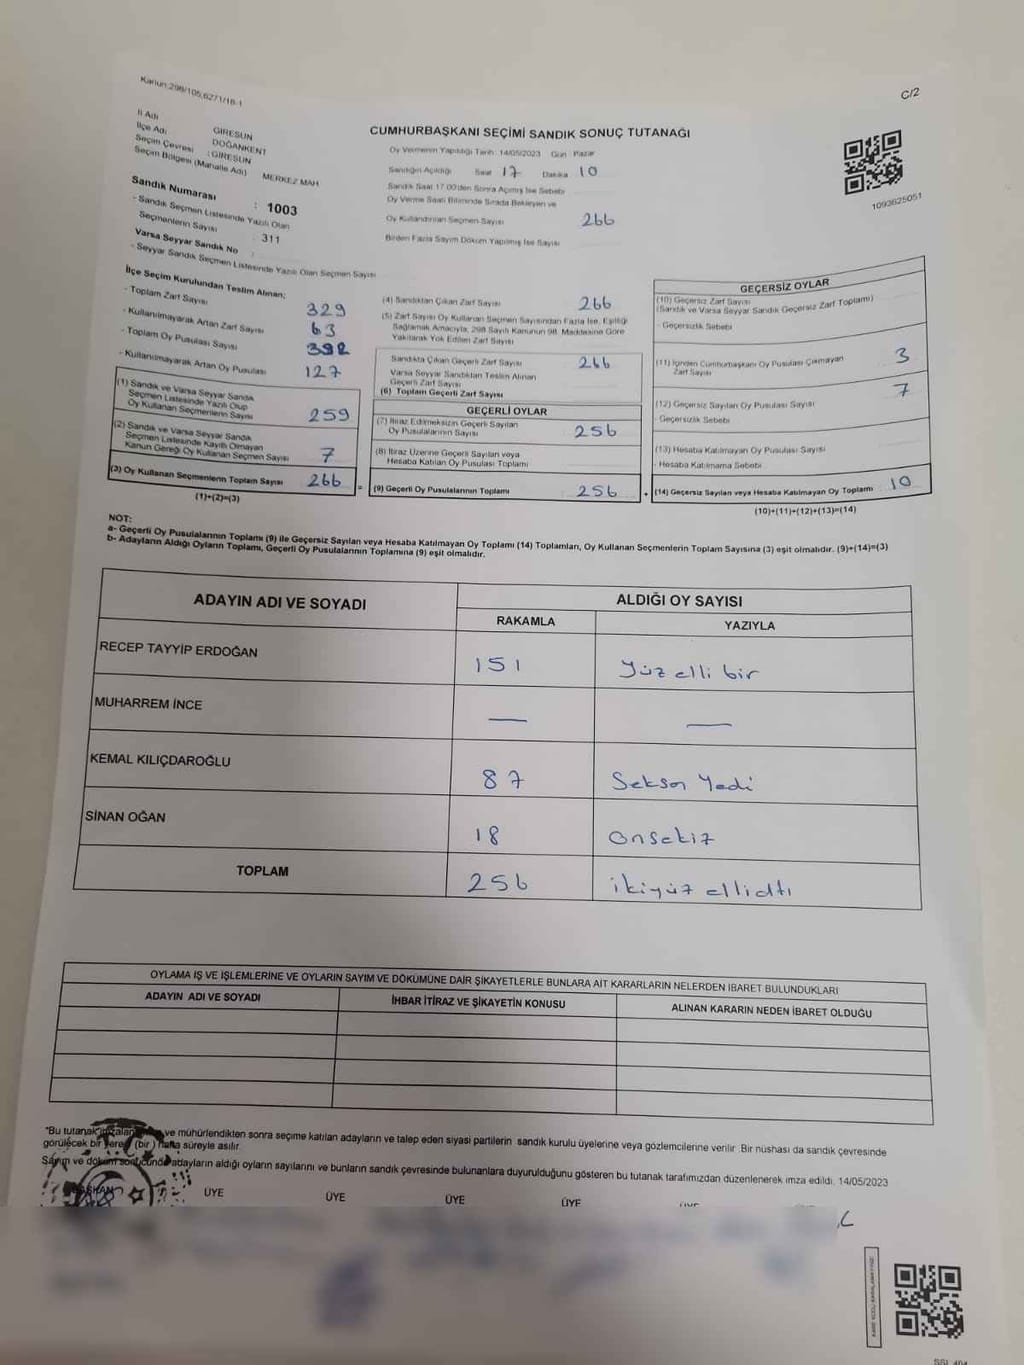 Kanun:298/105,6271/18-1
C/2
İl Adı : GİRESUN
İlçe Adı : DOĞANKENT
Seçim Çevresi : GİRESUN
Seçim Bölgesi (Mahalle Adı) MERKEZ MAH
Sandık Numarası : 1003
- Sandık Seçmen Listesinde Yazılı Olan
Seçmenlerin Sayısı : 311
Varsa Seyyar Sandık No :
- Seyyar Sandık Seçmen Listesinde Yazılı Olan Seçmen Sayısı
CUMHURBAŞKANI SEÇİMİ SANDIK SONUÇ TUTANAĞI
Oy Vermenin Yapıldığı Tarih: 14/05/2023 Gün : Pazar
Sandığın Açıldığı Saat 17 Dakika 10
Sandık Saat 17.00'den Sonra Açılmış İse Sebebi
Oy Verme Saati Bitiminde Sırada Bekleyen ve
Oy Kullandırılan Seçmen Sayısı 266
Birden Fazla Sayım Döküm Yapılmış İse Sayısı
1093625051
İlçe Seçim Kurulundan Teslim Alınan;
- Toplam Zarf Sayısı 329
- Kullanılmayarak Artan Zarf Sayısı 63
- Toplam Oy Pusulası Sayısı 392
- Kullanılmayarak Artan Oy Pusulası 127
(1) Sandık ve Varsa Seyyar Sandık
Seçmen Listesinde Yazılı Olup
Oy Kullanan Seçmenlerin Sayısı 259
(2) Sandık ve Varsa Seyyar Sandık
Seçmen Listesinde Kayıtlı Olmayan
Kanun Gereği Oy Kullanan Seçmen Sayısı 7
(3) Oy Kullanan Seçmenlerin Toplam Sayısı 266
(1)+(2)=(3)
(4) Sandıktan Çıkan Zarf Sayısı 266
(5) Zarf Sayısı Oy Kullanan Seçmen Sayısından Fazla İse, Eşitliği
Sağlamak Amacıyla, 298 Sayılı Kanunun 98. Maddesine Göre
Yakılarak Yok Edilen Zarf Sayısı
Sandıkta Çıkan Geçerli Zarf Sayısı 266
Varsa Seyyar Sandıktan Teslim Alınan
Geçerli Zarf Sayısı
(6) Toplam Geçerli Zarf Sayısı
GEÇERLİ OYLAR
(7) İtiraz Edilmeksizin Geçerli Sayılan
Oy Pusulalarının Sayısı 256
(8) İtiraz Üzerine Geçerli Sayılan veya
Hesaba Katılan Oy Pusulası Toplamı
= (9) Geçerli Oy Pusulalarının Toplamı 256
GEÇERSİZ OYLAR
(10) Geçersiz Zarf Sayısı
(Sandık ve Varsa Seyyar Sandık Geçersiz Zarf Toplamı)
- Geçersizlik Sebebi
(11) İçinden Cumhurbaşkanı Oy Pusulası Çıkmayan
Zarf Sayısı 3
(12) Geçersiz Sayılan Oy Pusulası Sayısı 7
- Geçersizlik Sebebi
(13) Hesaba Katılmayan Oy Pusulası Sayısı
- Hesaba Katılmama Sebebi
+ (14) Geçersiz Sayılan veya Hesaba Katılmayan Oy Toplamı 10
(10)+(11)+(12)+(13)=(14)
NOT:
a- Geçerli Oy Pusulalarının Toplamı (9) ile Geçersiz Sayılan veya Hesaba Katılmayan Oy Toplamı (14) Toplamları, Oy Kullanan Seçmenlerin Toplam Sayısına (3) eşit olmalıdır. (9)+(14)=(3)
b- Adayların Aldığı Oyların Toplamı, Geçerli Oy Pusulalarının Toplamına (9) eşit olmalıdır.
ADAYIN ADI VE SOYADI ALDIĞI OY SAYISI
RAKAMLA YAZIYLA
RECEP TAYYİP ERDOĞAN 151 Yüz elli bir
MUHARREM İNCE — —
KEMAL KILIÇDAROĞLU 87 Seksen Yedi
SİNAN OĞAN 18 onsekiz
TOPLAM 256 ikiyüz ellialtı
OYLAMA İŞ VE İŞLEMLERİNE VE OYLARIN SAYIM VE DÖKÜMÜNE DAİR ŞİKAYETLERLE BUNLARA AİT KARARLARIN NELERDEN İBARET BULUNDUKLARI
ADAYIN ADI VE SOYADI İHBAR İTİRAZ VE ŞİKAYETİN KONUSU ALINAN KARARIN NEDEN İBARET OLDUĞU
"Bu tutanak imzalandıktan ve mühürlendikten sonra seçime katılan adayların ve talep eden siyasi partilerin sandık kurulu üyelerine veya gözlemcilerine verilir. Bir nüshası da sandık çevresinde
görülecek bir yere (bir) hafta süreyle asılır.
Sayım ve döküm sonucunda adayların aldığı oyların sayılarını ve bunların sandık çevresinde bulunanlara duyurulduğunu gösteren bu tutanak tarafımızdan düzenlenerek imza edildi. 14/05/2023
BAŞKAN ÜYE ÜYE ÜYE ÜYE ÜYE